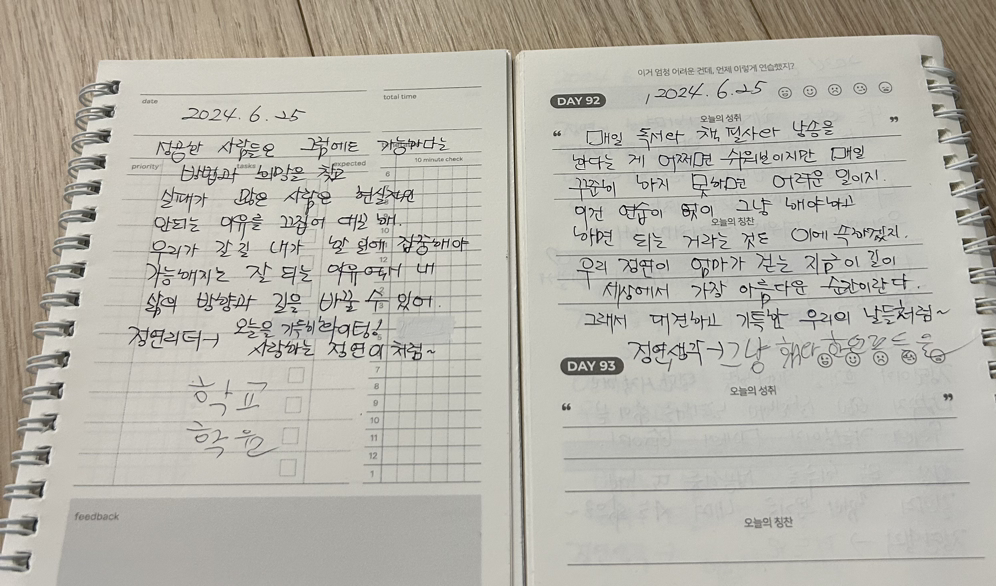 date
total time
2024. 6. 25
성공한 사람들은 그럼에도 가능하다는
priority
tasks
expected
10 minute check
방법과 희망을 찾고
실패가 많은 사람은 현실적인
안되는 이유를 끄집어 해.
우리가 갈길 내가 할 일에 집중해야
가능해지는 잘 되는 이유 내
삶의 방향과 길을 바꿀 수 있어.
정연리더→ 오늘을 파이팅!
사랑하는 정연이 처럼~
6
10
12
2
3
7
8
9
10
11
12
1
학교
학원
feedback
이거 엄청 어려운 건데, 언제 이렇게 연습했지?
DAY 92
2024. 6. 25
오늘의 성취
“ 매일 독서와 책 필사와 낭송을 ”
한다는 게 어쩌면 쉬워보이지만 매일
꾸준히 하지 못하면 어려운 일이지.
이건 연습이 없이 그냥 해야하고
오늘의 칭찬
하면 되는 거라는 것도 이에 속하겠지.
우리 정연이 엄마가 걷는 지금이 길이
세상에서 가장 아름다운 순간이란다.
그래서 대견하고 기특한 우리의 날들처럼~
정연생각→그냥 해라
DAY 93
오늘의 성취
“ ”
오늘의 칭찬